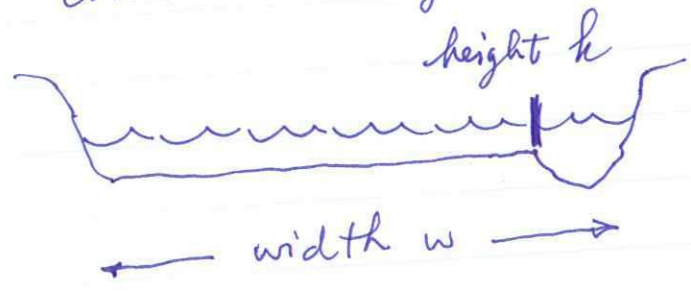 height h
width w